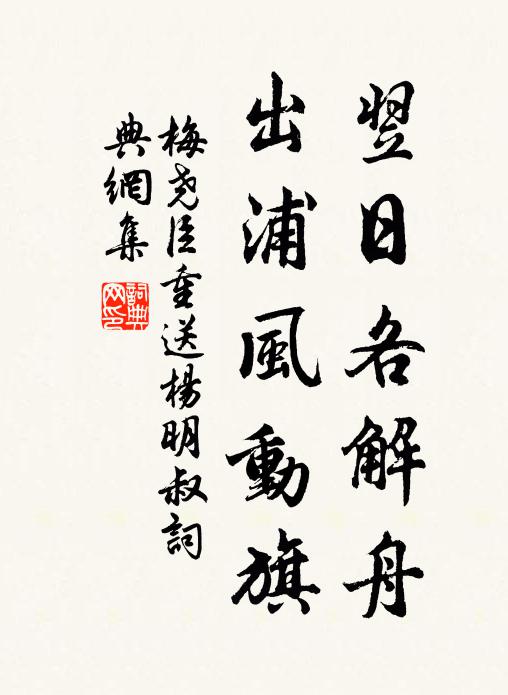 翌日各解舟
出浦風動旗
梅堯臣重送楊明叔詞
典網集
詞典網印